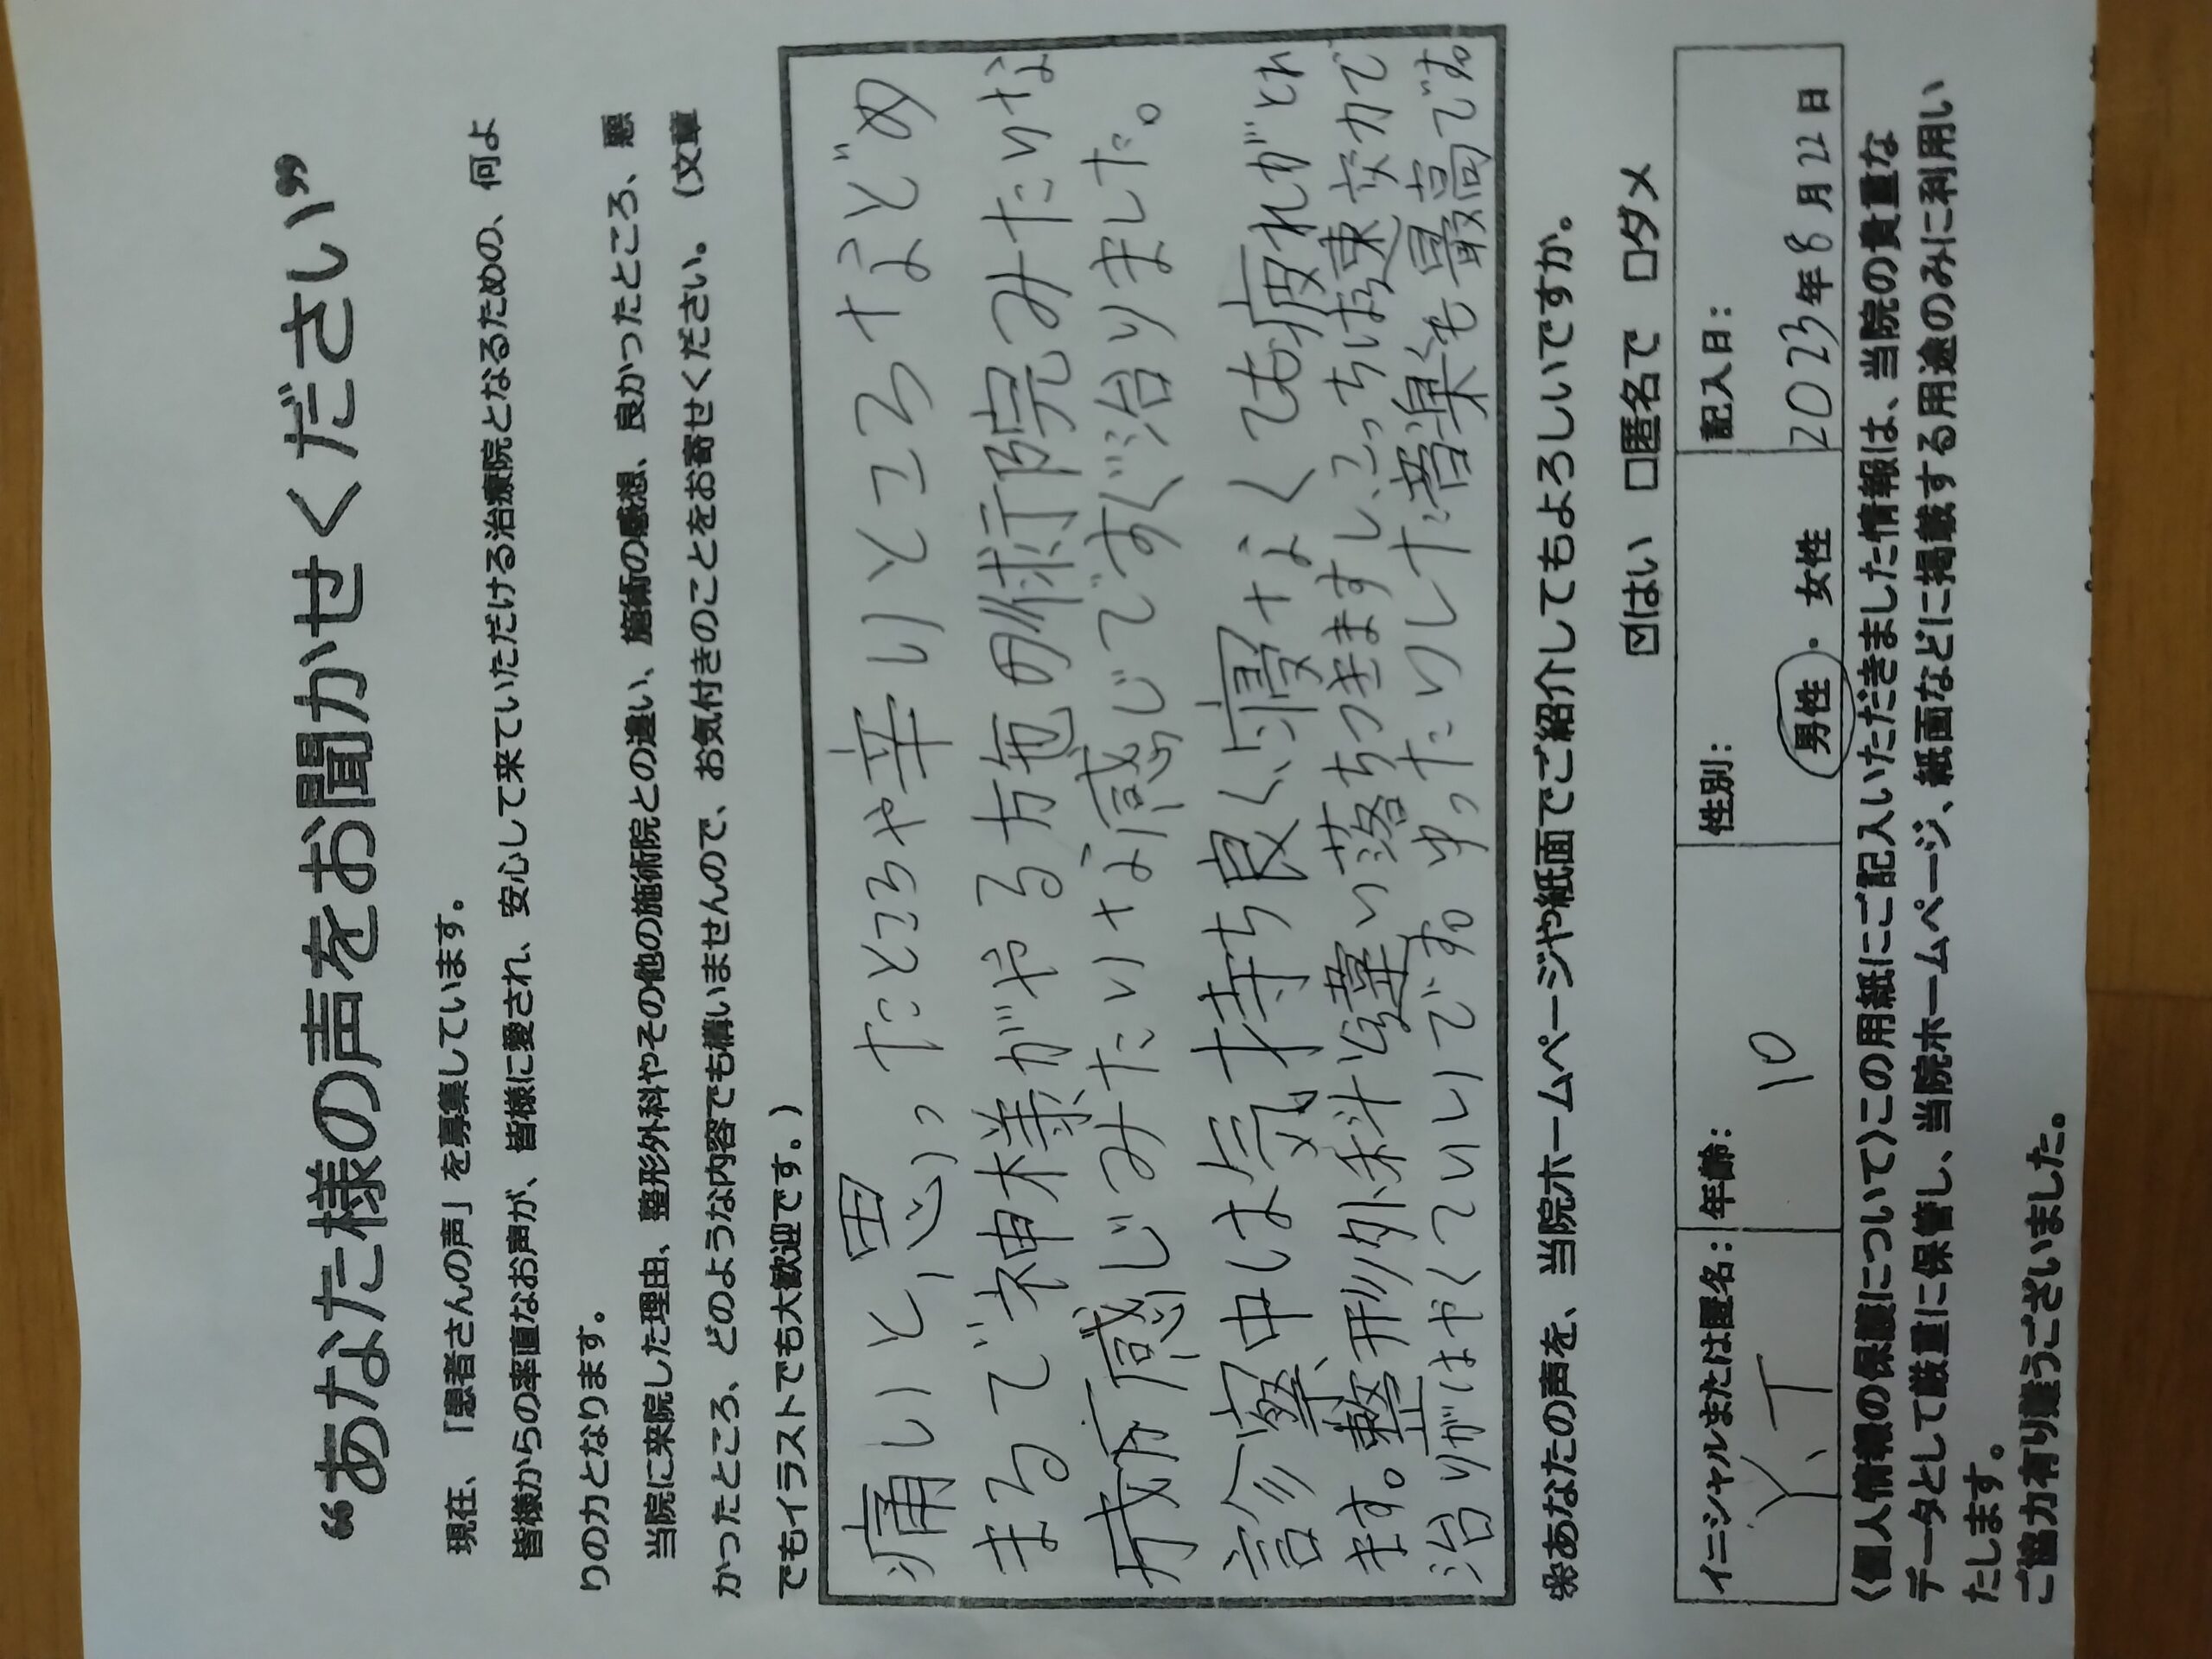 “あなた様の声をお聞かせください”
現在、「患者さんの声」を募集しています。
皆様からの率直なお声が、皆様に愛され、安心して来ていただける治療院となるための、何よ
りの力となります。
当院に来院した理由、整形外科やその他の施術院との違い、施術の感想、良かったところ、悪
かったところ、どのような内容でも構いませんので、お気付きのことをお寄せください。（文章
でもイラストでも大歓迎です。）
痛いと思ったところや辛いところなど
まるで神様がやる方の施術院みたいな
感じみたいな感じですぐ治りました。
診察中は気持ち良く、寝なくても疲れがとれ
ます。整形外科と違い落ちつきますし、こっちは速攻力で
治りがはやくていいです。ゆったりした音楽も最高です。
※あなたの声を、当院ホームページや紙面でご紹介してもよろしいですか。
☑はい □匿名で □ダメ
イニシャルまたは匿名： 年齢： 性別： 記入日：
Y.T 10 男性・女性 2023年8月22日
〈個人情報の保護について〉この用紙にご記入いただきました情報は、当院の貴重な
データとして厳重に保管し、当院ホームページ、紙面などに掲載する用途のみに利用い
たします。
ご協力有り難うございました。